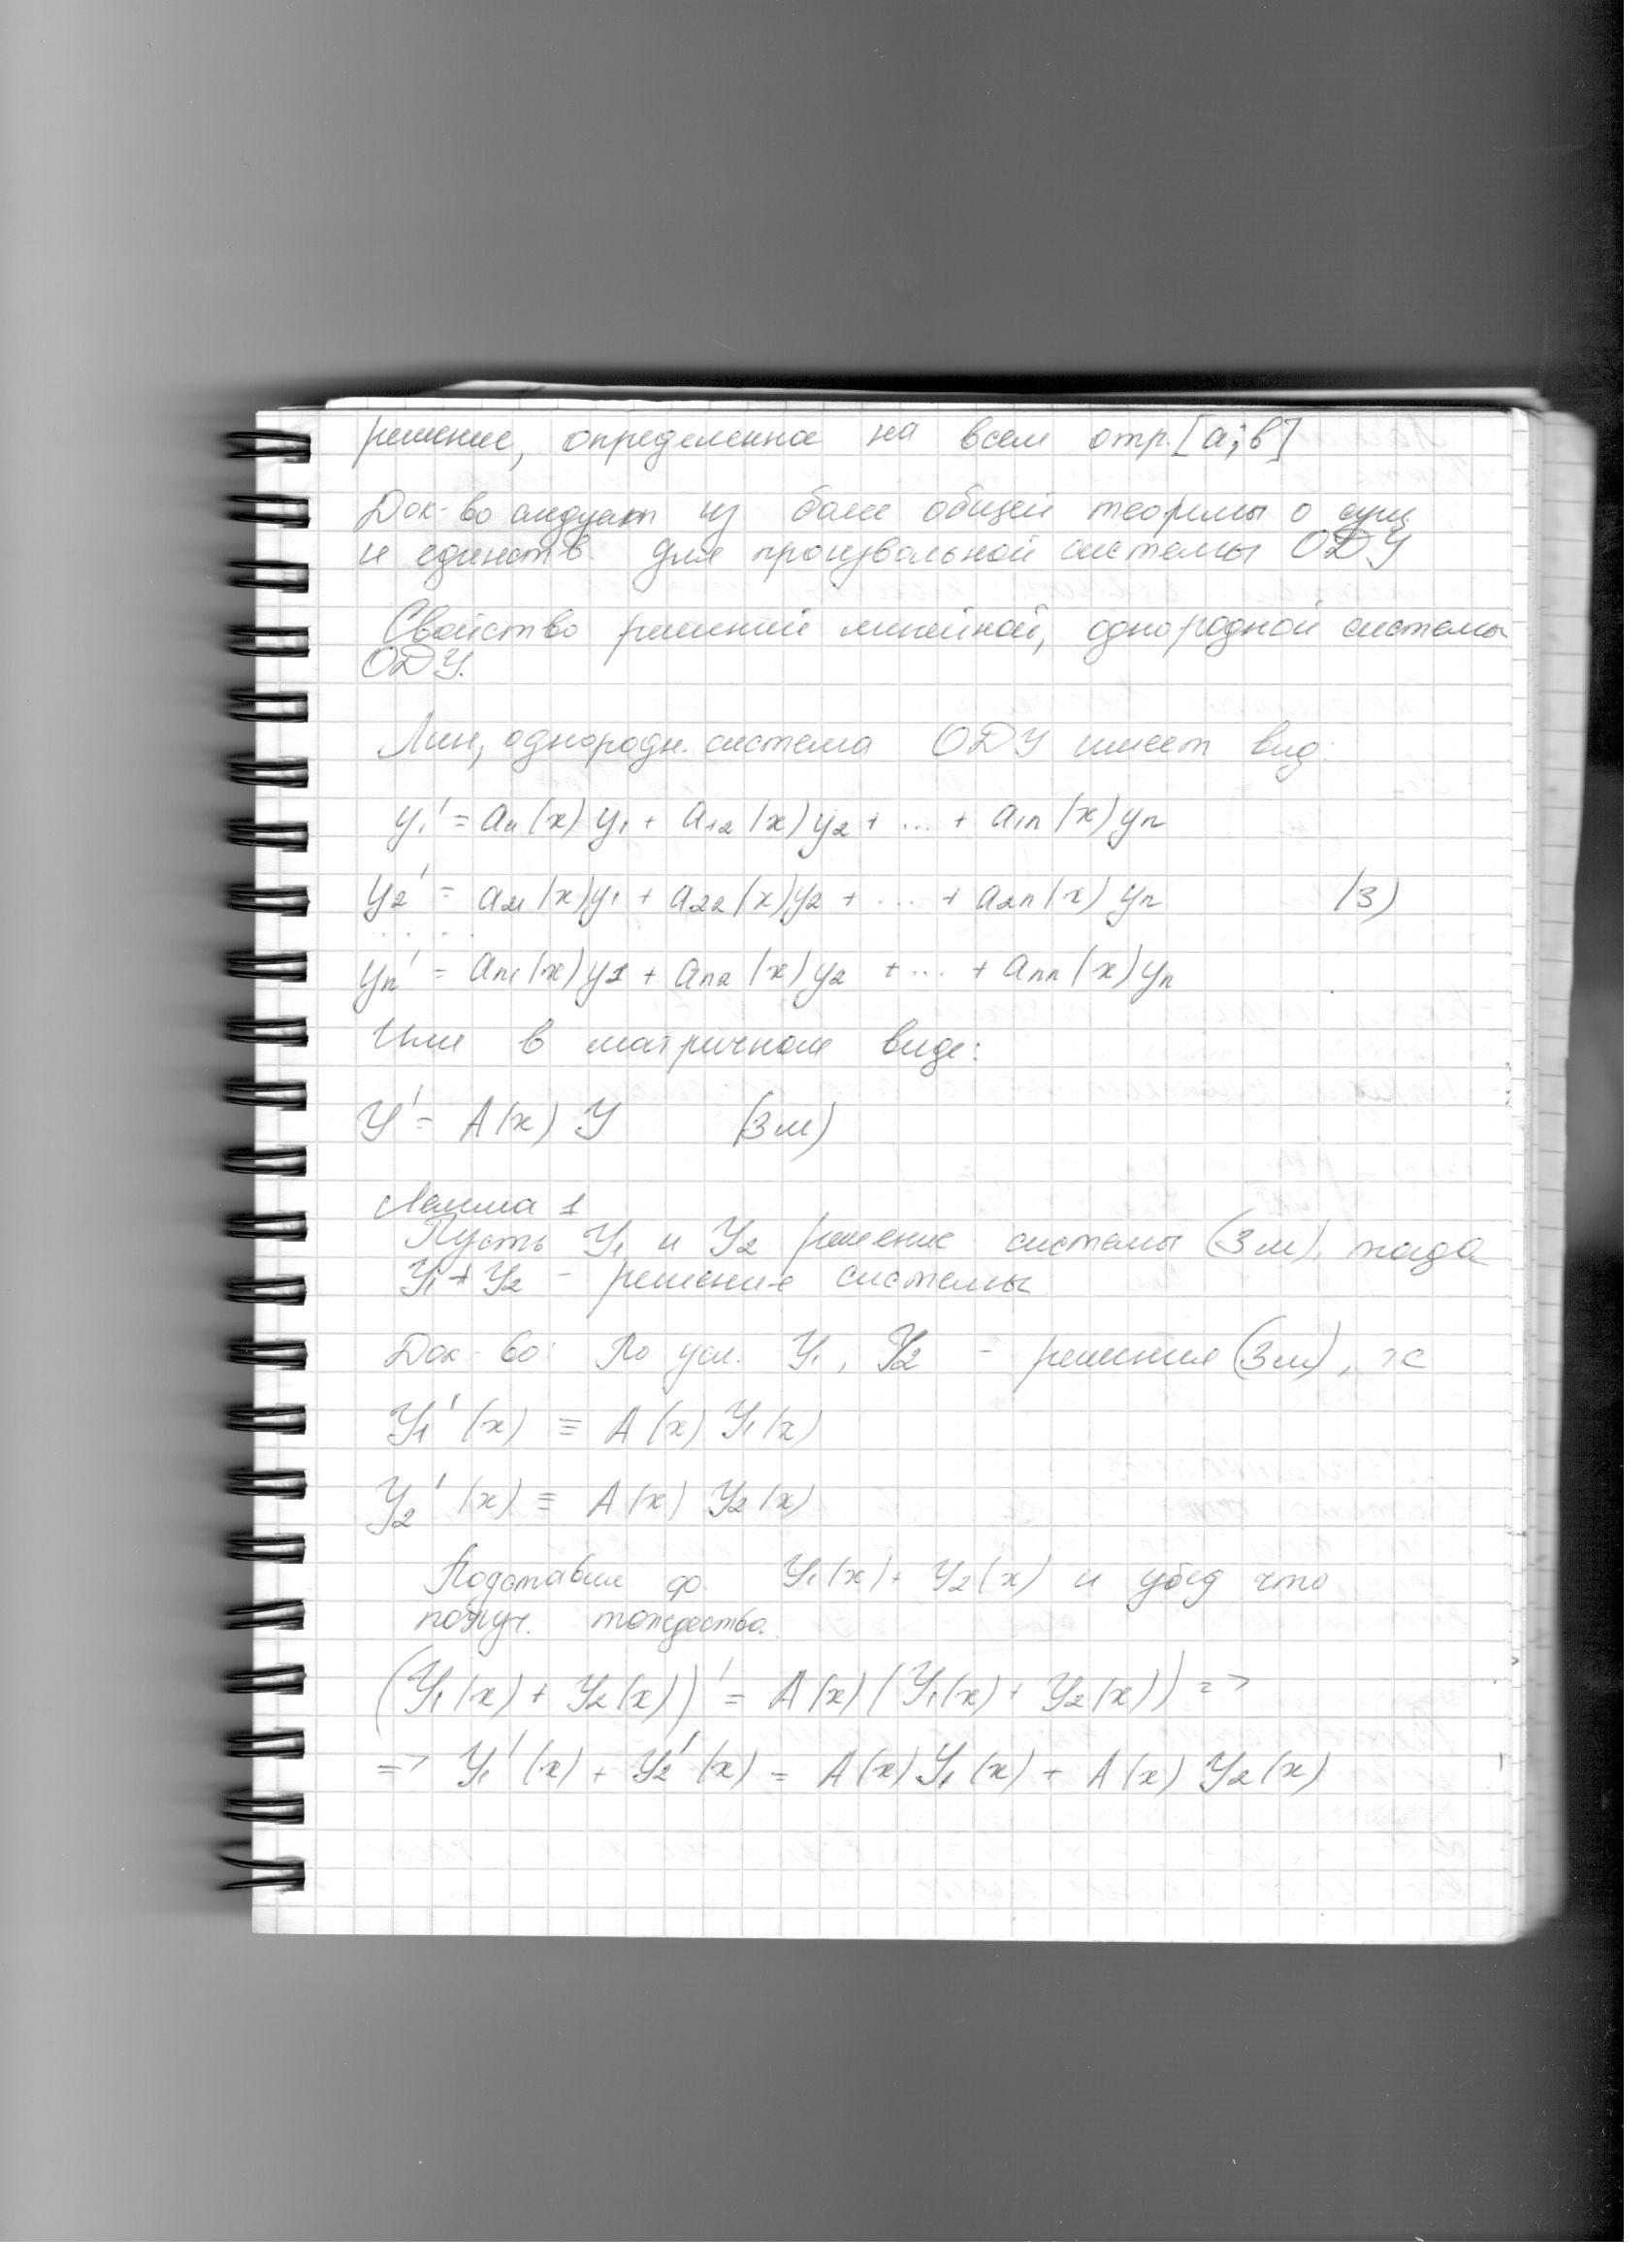 решение, определенное на всем отр. [a; b]
Док-во следует из более общей теоремы о сущ.
и единств. для произвольной системы ОДУ
Свойство решений линейной, однородной системы
ОДУ.
Лин, однородн. система ОДУ имеет вид:
y₁' = a₁₁(x) y₁ + a₁₂(x) y₂ + ... + a₁ₙ(x) yₙ
y₂' = a₂₁(x) y₁ + a₂₂(x) y₂ + ... + a₂ₙ(x) yₙ (3)
. . . . .
yₙ' = aₙ₁(x) y₁ + aₙ₂(x) y₂ + ... + aₙₙ(x) yₙ
Или в матричном виде:
У' = A(x) У (3м)
Лемма 1
Пусть У₁ и У₂ решение системы (3м), тогда
У₁ + У₂ - решение системы
Док-во: По усл. У₁, У₂ - решения (3м), те
У₁'(x) ≡ A(x) У₁(x)
У₂'(x) ≡ A(x) У₂(x)
Подставим ф. У₁(x) + У₂(x) и убед что
получ. тождество.
(У₁(x) + У₂(x))' = A(x) (У₁(x) + У₂(x)) =>
=> У₁'(x) + У₂'(x) = A(x) У₁(x) + A(x) У₂(x)